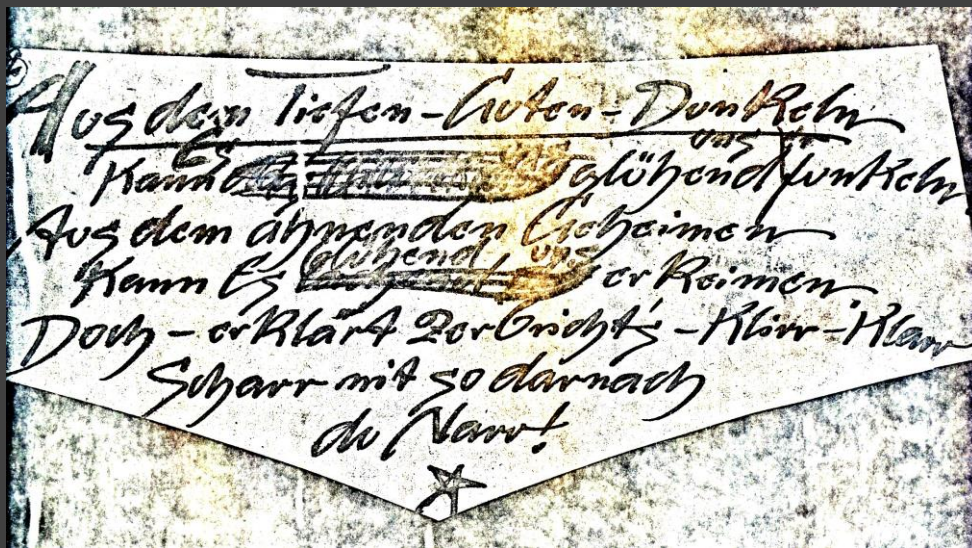 Aus dem Tiefen-Guten-Dunkeln
Kann Es uns glühend funkeln
Aus dem ahnenden Geheimen
Kann Es glühend, uns erkeimen.
Doch - erklärt Zerbricht's - Klirr-Klarr
Scharr nit so darnach
du Narr!